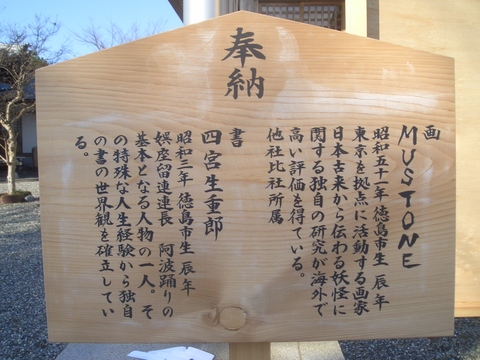 奉納
画
MUSTONE
昭和五十一年徳島市生 辰年
東京を拠点に活動する画家
日本古来から伝わる妖怪に
関する独自の研究が海外で
高い評価を得ている。
他社比社所属
書
四宮生重郎
昭和三年徳島市生 辰年
娯座留連連長 阿波踊りの
基本となる人物の一人。そ
の特殊な人生経験から独自
の書の世界観を確立してい
る。